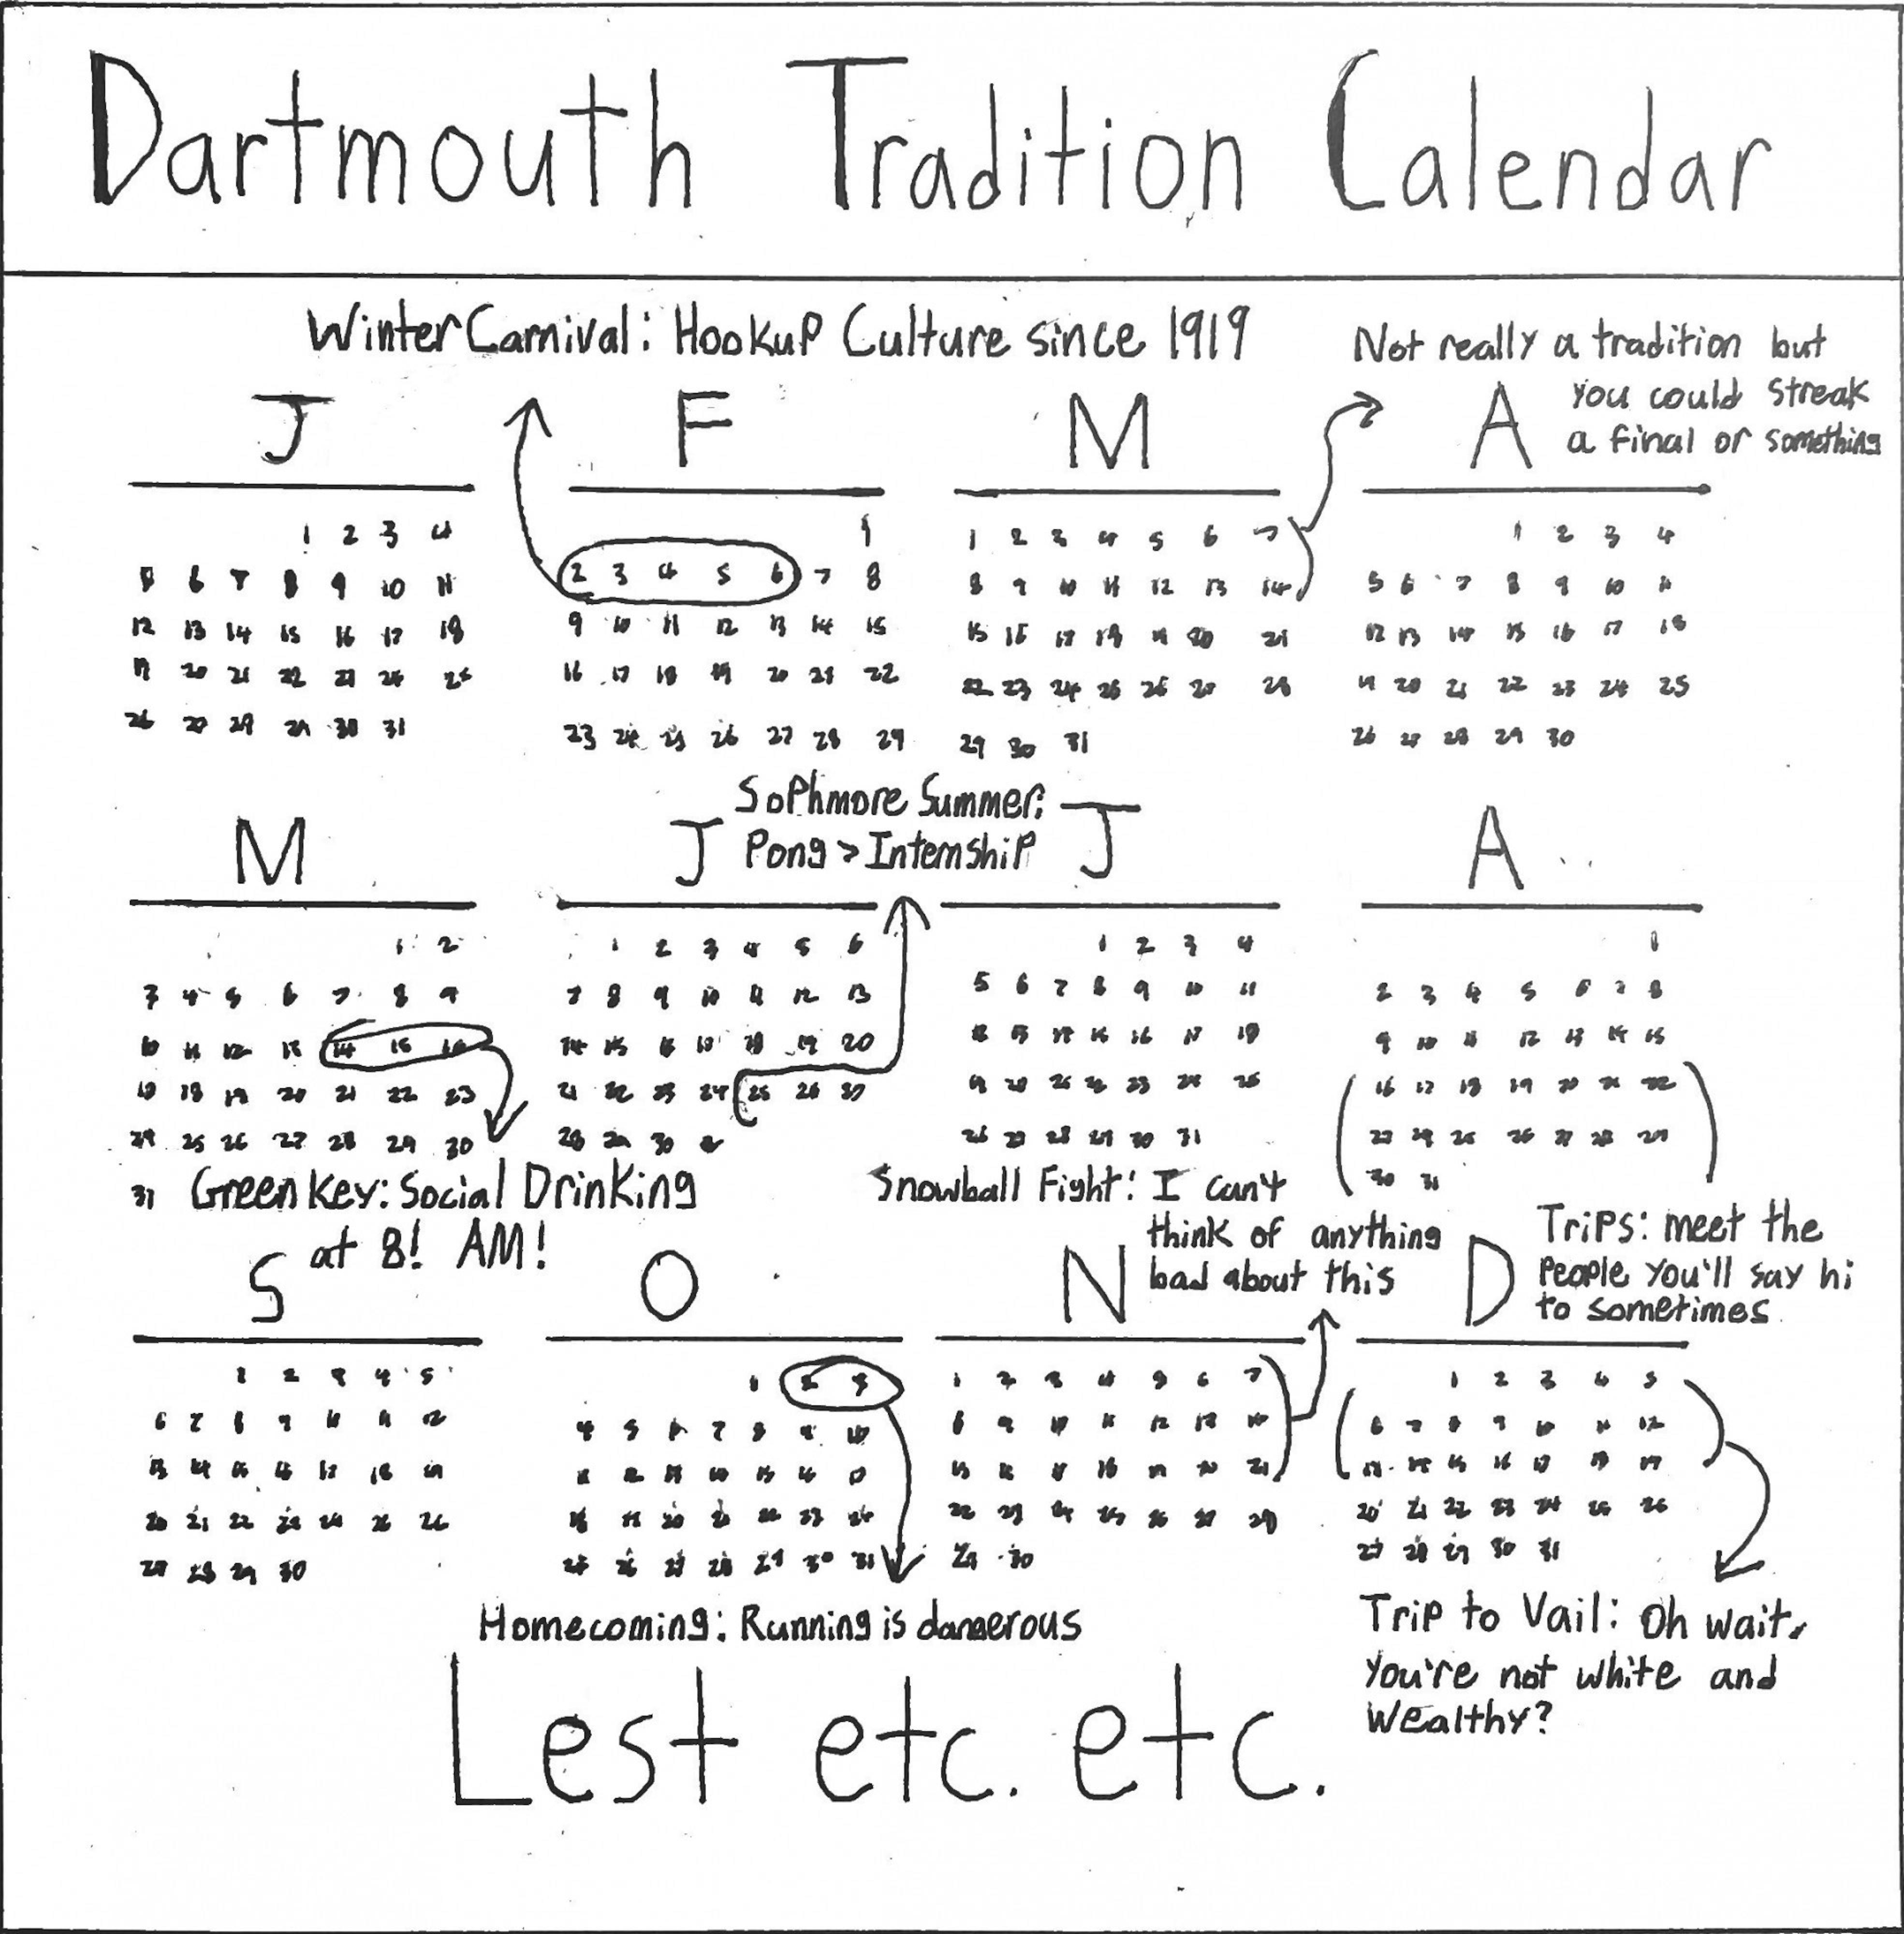 Dartmouth Tradition Calendar
Winter Carnival: Hookup Culture since 1919
Not really a tradition but
you could streak
a final or something
J
1 2 3 4
5 6 7 8 9 10 11
12 13 14 15 16 17 18
19 20 21 22 23 24 25
26 27 29 30 31
F
1
2 3 4 5 6 7 8
9 10 11 12 13 14 15
16 17 18 19 20 21 22
23 24 25 26 27 28 29
M
1 2 3 4 5 6 7
8 9 10 11 12 13 14
15 16 17 18 19 20 21
22 23 24 25 26 27 28
29 30 31
A
1 2 3 4
5 6 7 8 9 10 11
12 13 14 15 16 17 18
19 20 21 22 23 24 25
26 27 28 29 30
Sophmore Summer:
Pong > Internship
M
1 2
3 4 5 6 7 8 9
10 11 12 13 14 15 16
18 19 20 21 22 23
25 26 27 28 29 30
31
J
1 2 3 4 5 6
7 8 9 10 11 12 13
14 15 18 19 20
21 22 23 24 25 26 27
28 29 30
J
1 2 3 4
5 6 7 8 9 10 11
15 16 17 18
19 20 23 25
26 27 28 29 30 31
A
1
2 3 4 5 6 7 8
9 10 11 12 13 14 15
16 17 18 19 20 21 22
25 26 27 28 29
30 31
Green Key: Social Drinking
at 8! AM!
Snowball Fight: I can't
think of anything
bad about this
Trips: meet the
people you'll say hi
to sometimes
S
1 2 3 4 5
6 7 8 9 10 11 12
13 14 15 16 17 18 19
20 21 22 23 24 25 26
27 28 29 30
O
1 2 3
4 5 6 7 8 9 10
20 22 23 24
25 26 27 28 29 30 31
N
1 2 3 4 5 6 7
8 9 10 11 12 13 14
15 20 21
22 23 24 25 26 27
29 30
D
1 2 3 4 5
6 7 8 9 10 11 12
15 16 17
20 21 22 23 24 25 26
27 28 29 30 31
Homecoming: Running is dangerous
Trip to Vail: Oh wait,
you're not white and
wealthy?
Lest etc. etc.